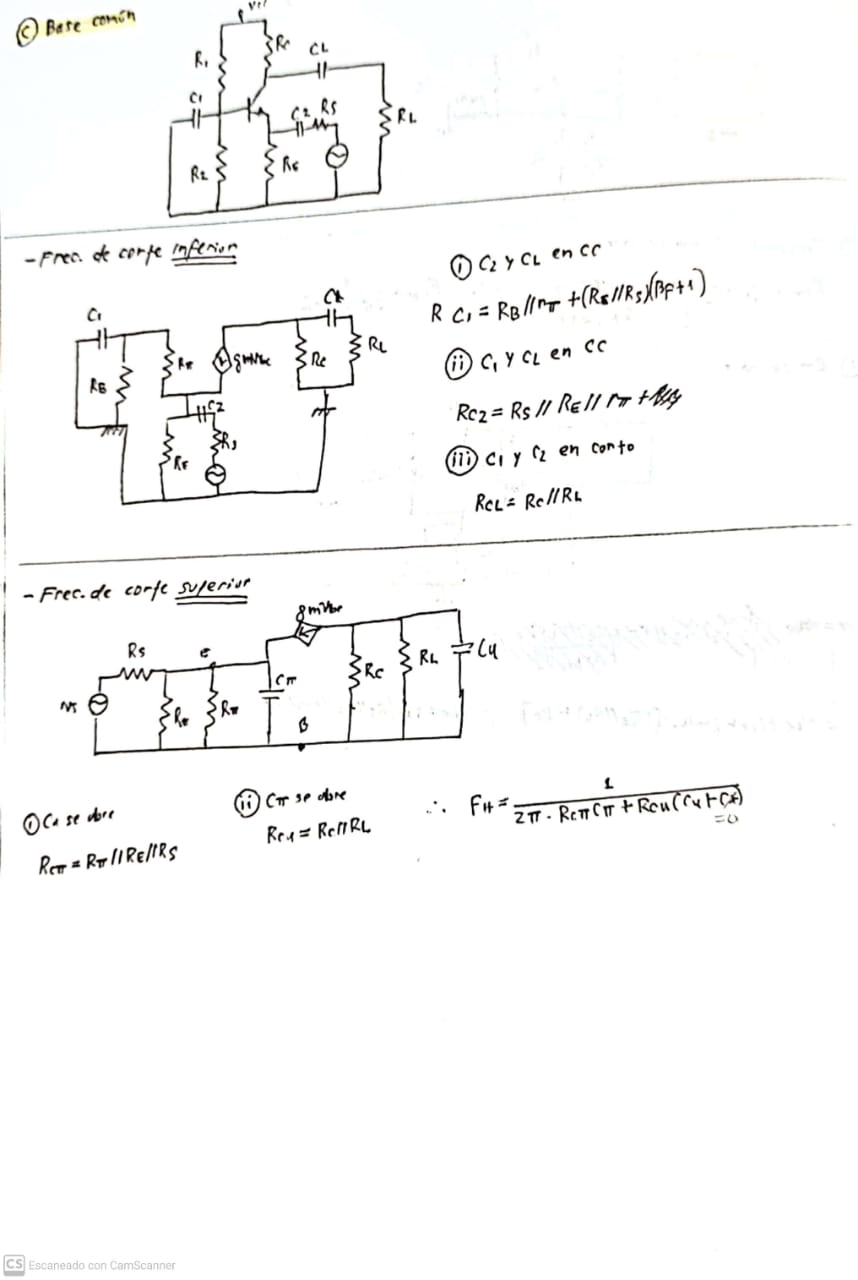 Ⓒ Base común
Vcc
R1
Rc
CL
C1
C2 RS
RL
R2
RE
- Frec. de corte inferior
C1
RB
Rπ
gmVbe
Rc
RL
C2
RS
RE
ⓘ C2 y CL en CC
R C1 = RB // rπ + (RE // RS)(βF+1)
ⓘⓘ C1 y CL en CC
RC2 = RS // RE // rπ
ⓘⓘⓘ C1 y C2 en corto
RCL = RC // RL
- Frec. de corte superior
gmVbe
Rs
e
Vs
RE
Rπ
Cπ
B
RC
RL
Cu
ⓘ Cu se abre
RCπ = Rπ // RE // RS
ⓘⓘ Cπ se abre
RCu = RC // RL
∴ FH = 1
2π · RCπ Cπ + RCu (Cu + Cx)
=0
CS Escaneado con CamScanner